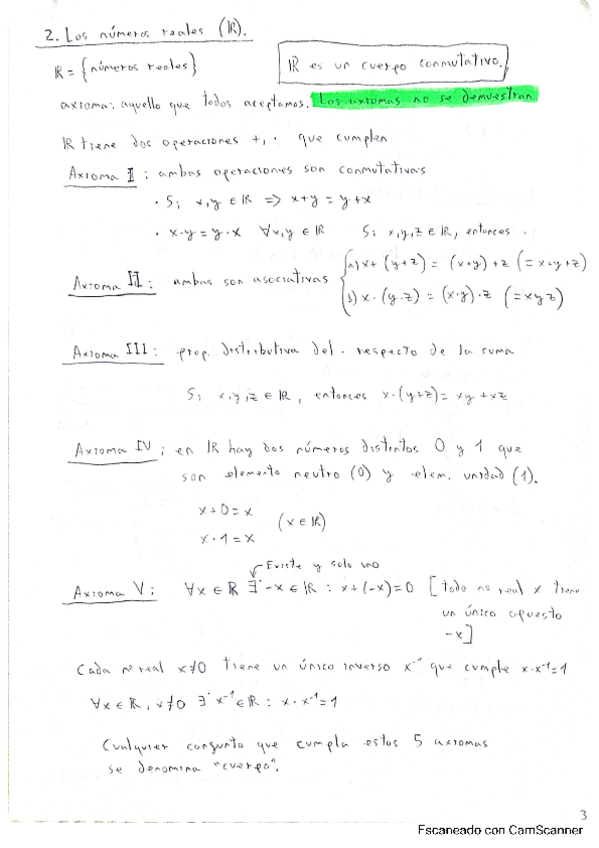 2. Los números reales (ℝ).
ℝ = {números reales}
ℝ es un cuerpo conmutativo.
axioma: aquello que todos aceptamos. Los axiomas no se demuestran.
ℝ tiene dos operaciones +, · que cumplen
Axioma I: ambas operaciones son conmutativas
· Si x,y ∈ ℝ => x+y = y+x
· x·y = y·x ∀x,y ∈ ℝ Si x,y,z ∈ ℝ, entonces.
Axioma II: ambas son asociativas { a) x+(y+z) = (x+y)+z (=x+y+z)
b) x·(y·z) = (x·y)·z (=xyz)
Axioma III: prop. distributiva del · respecto de la suma
Si x,y,z ∈ ℝ, entonces x·(y+z) = xy + xz
Axioma IV: en ℝ hay dos números distintos 0 y 1 que
son elemento neutro (0) y elem. unidad (1).
x+0=x
(x ∈ ℝ)
x·1=x
Existe y solo uno
Axioma V: ∀x ∈ ℝ ∃· -x ∈ ℝ : x+(-x)=0 [todo nº real x tiene
un único opuesto
-x]
Cada nº real x≠0 tiene un único inverso x⁻¹ que cumple x·x⁻¹=1
∀x ∈ ℝ, x≠0 ∃· x⁻¹ ∈ ℝ : x·x⁻¹=1
Cualquier conjunto que cumpla estos 5 axiomas
se denomina "cuerpo".
3
Escaneado con CamScanner